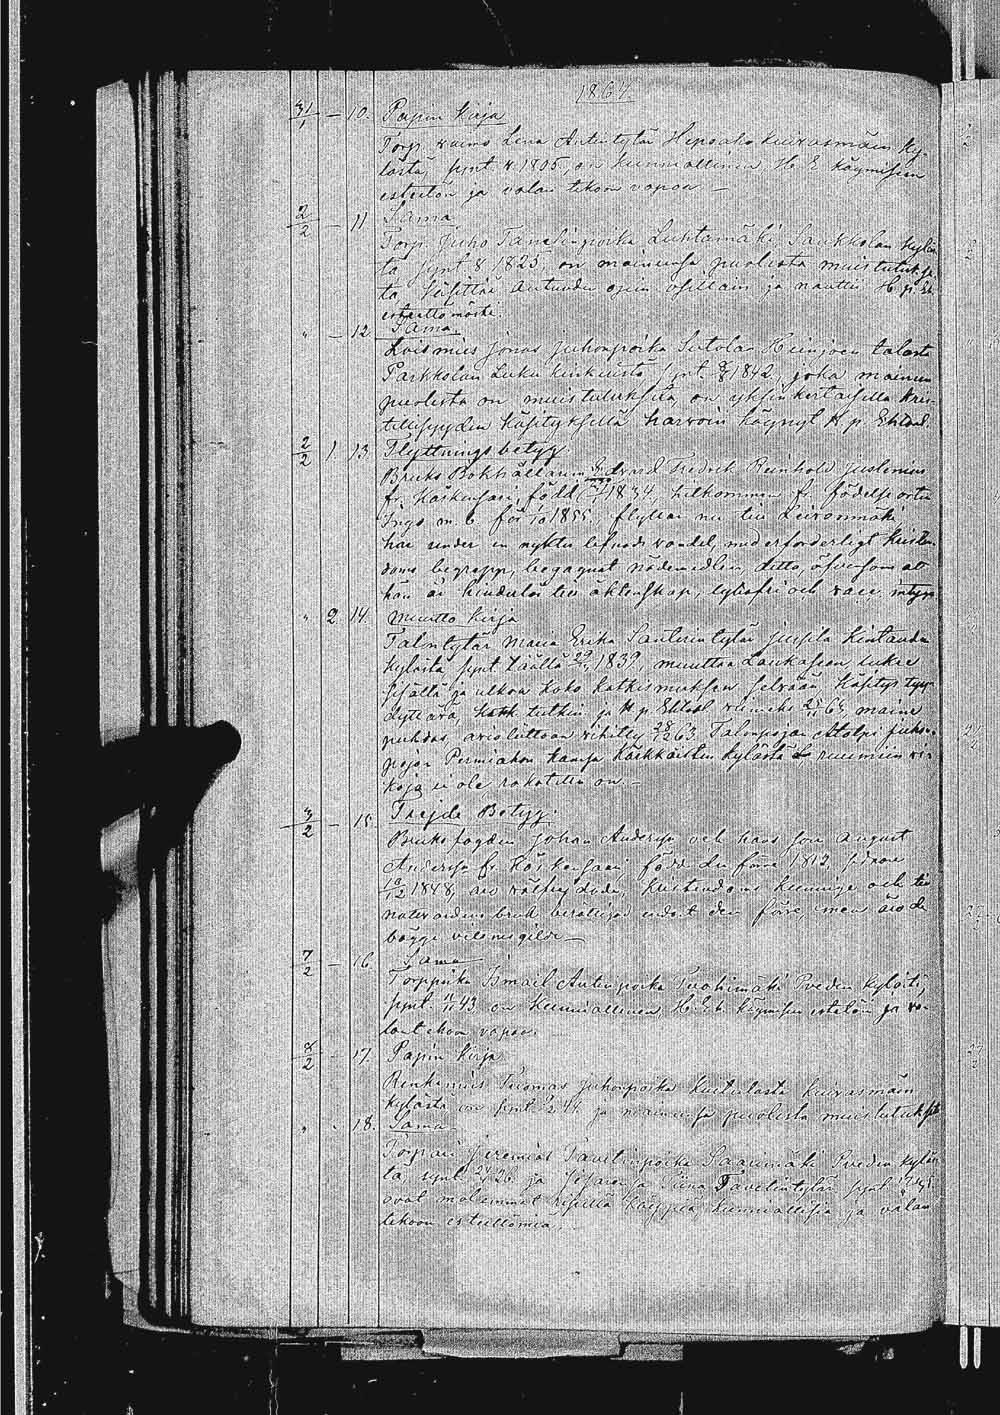 1864
31/1 — 10. Papin Kirja
Torp. vaimo Lena Antintytär Hepoaho Kuivasmäen ky-
lästä, synt. v. 1805, on kunniallinen, H. E. käymiseen
esteetön ja valan tekoon vapaa —
2/2 — 11 Sama
Torp. Juho Taneli­npoika Luhtamäki, Saukkolan kyläs-
tä synt. 8 1825, on maineensa puolesta muistutukse-
ta, käsittää autuuden opin ja nauttii H. p. Eh.
esteettömästi.
" — 12 Sama.
Loismies Jonas Juhonpoika Sutolan Heinjoen talosta
Parkkolan Luku kinkeristä synt. 1842, joka maineen
puolesta on muistutuksita, on yksinkertaisella kris-
tillisyyden käsityksellä harvoin käynyt H. p. Ehtool.
2/2 1 13 Flyttnings betyg.
Bruks Bokhållaren Edvard Fredrik Reinhold Juslenius
fr. Koskensaari, född 1834, tillkommen fr. födelseorten
Ingo m. b. för 1855, flyttar nu till Leivonmäki
har under en nykter lefnads vandel, med erforderligt kristen-
doms begrepp, begagnat nådemedlen ditto, äfvensom att
han är hinderlös till äktenskap, lytesfri och vacc. intyga
" 2 14. Muutto kirja
Talontytär Maria Erika Santerintytär Jussila Kintauden
kylästä, synt. täällä 1839, muuttaa Laukaaseen, lukee
sisältä ja ulkoa koko katkismuksen selvään, käsitys tyy-
dyttävä, tutkin ja H. p. Ehtool viimeksi 63, maine
puhdas, avioliittoon vihitty 63 Talonpojan Adolf Juhon-
pojan Permiahon kanssa Kärkkäisten kylästä, ruumiin vi-
koja ei ole rokotettu on —
3/2 — 15 Frejde Betyg.
Bruksfogden Johan Anderss. och hans son August
Anderss. fr. Koskensaari, född den förre 1812, sednare
1848, äro välfrejdade, kristendoms kunnige och till
nattvardens bruk berättigad endast den förre, men äro de
bägge vittnesgilde —
7/2 — 16. Sama
Torppika Ismail Antinpoika Tuohimäki Pveden kylästä,
synt. 43 on kunniallinen H. Eh. käymiseen esteetön ja va-
lantekoon vapaa.
8/2 — 17. Papin Kirja
Renkimies Tuomas Juhonpoika Kuitulasta Kuivasmäen
kylästä on synt. 44 ja maineensa puolesta muistutukseta
" - 18. Sama —
Torpari Jeremias Taavetinpoika Saarimäki Pveden kyläs-
tä synt. 26 ja sisarensa Tiina Taavetintytär synt.
ovat molemmat ripillä käypiä, kunniallisia ja valan
tekoon esteettömiä.